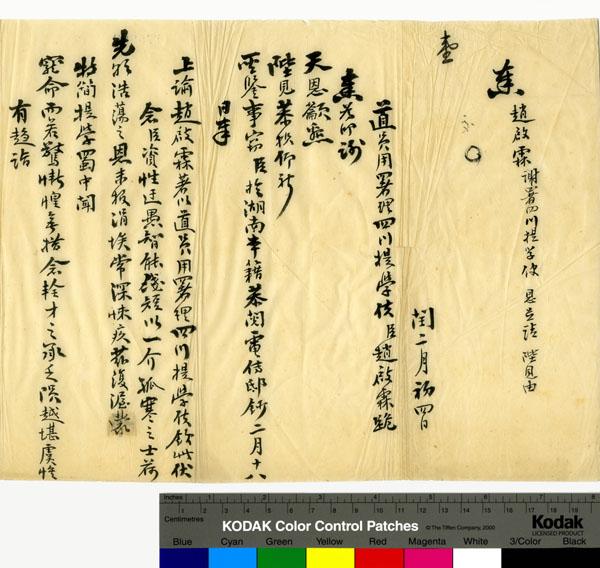 奏
趙啟霖謝署四川提學使恩並請陛見由
閏二月初四日
道員用署理四川提學使臣趙啟霖跪
奏為叩謝
天恩籲懇
陛見恭摺仰祈
聖鑒事竊臣於湖南本籍恭閱電傳邸鈔二月十八
日奉
上諭趙啟霖著以道員用署理四川提學使欽此伏
念臣資性迂愚智能淺短以一介孤寒之士荷
先朝浩蕩之恩未報涓埃常深悚疚茲復渥蒙
特簡提學蜀中聞
寵命而若驚慚惶無措念輇才之承乏隕越堪虞惟
有趨詣
Inches 1 2 3 4 5 6 7 8
Centimetres
KODAK Color Control Patches
© The Tiffen Company, 2000
Kodak
LICENSED PRODUCT
Blue Cyan Green Yellow Red Magenta White 3/Color Black